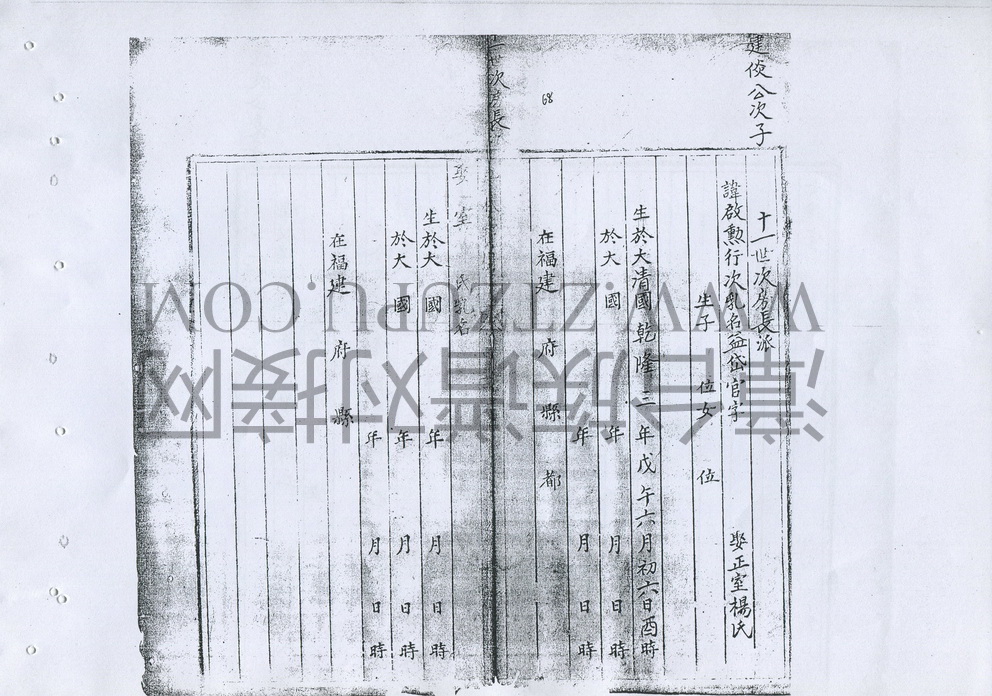 建俊公次子
十一世次房長派
諱啟勲行次乳名益岱官字 娶正室楊氏
生子 位女 位
生於大清國乾隆三年戊午六月初六日酉時
於大 國 年 月 日 時
年 月 日 時
在福建 府 縣 都
68
世次房長
娶 室 氏乳名
生於大 國 年 月 日 時
於大 國 年 月 日 時
年 月 日 時
在福建 府 縣
WWW.ZTZUPU.COM
漳台族谱对接网